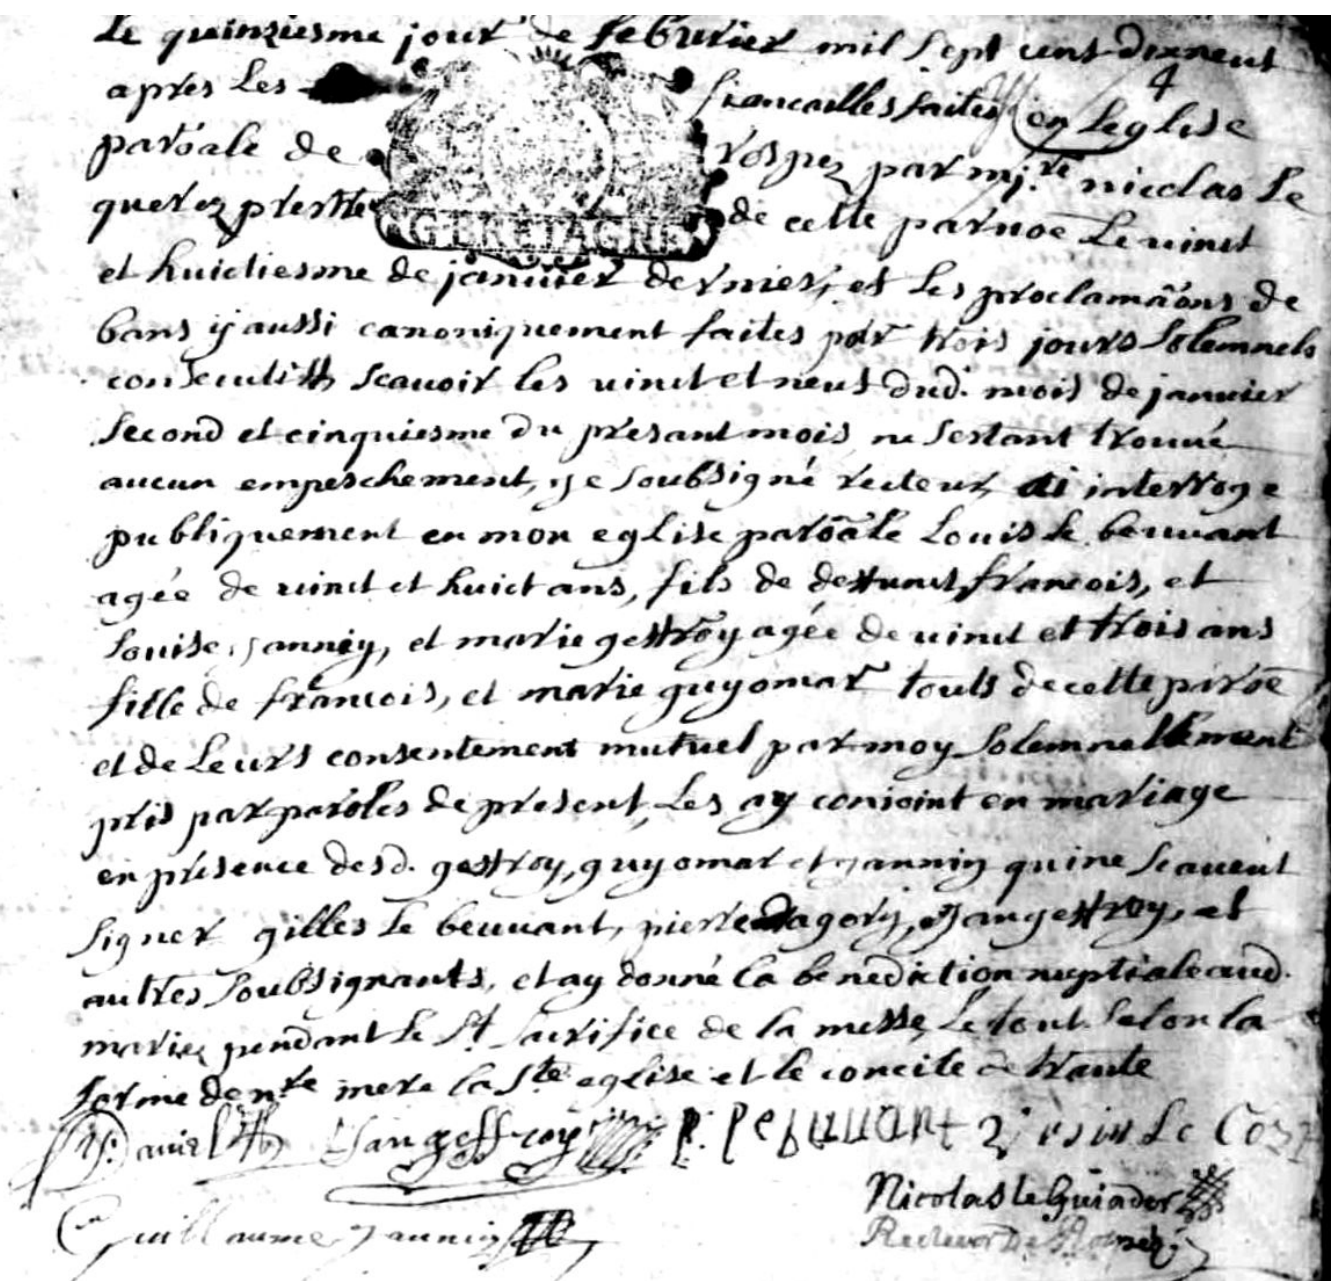 Le quinziesme jour de feburier mil sept cens dixneuf
4
apres les fiancailles faites en Leglise
paroāle de rospez par mi.re nicolas Le
querez prestre de cette parroē Le uinct
G. BRETAGNE
et huictiesme de januier dernier, et Les proclamāōns de
bans y aussi canoniquement faites par trois jours Solemnels
consecutifs Scauoir les uinct et neuf dud. mois de januier
Second et cinquiesme du presant mois ne Sestant trouué
aucun empeschement, je Soubsigné recteur ai interroge
publiquement en mon eglise paroāle Louis le beuuant
agée de uinct et huict ans, fils de deffunct francois, et
Louise jannin, et marie geffroy agée de uinct et trois ans
fille de francois, et marie guyomar touts de cette paroē
et de Leurs consentement mutuel par moy Solemnellement
pris par paroles de present, Les ay conioint en mariage
en presence desd. geffroy, guyomar et jannin qui ne Scauent
Signer gilles le beuuant, pierre jan geffroy, et
autres Soubsignants, et ay donné la benediction nuptiale aud.
mariez pendant le St Sacrifice de la messe, Le tout Selon la
forme de nre mere la Ste eglise et le concile de trante
Daniel Jan geffroy Le Le Coz
Nicolas le Guiader
Guillaume Jannin Recteur De Rospez